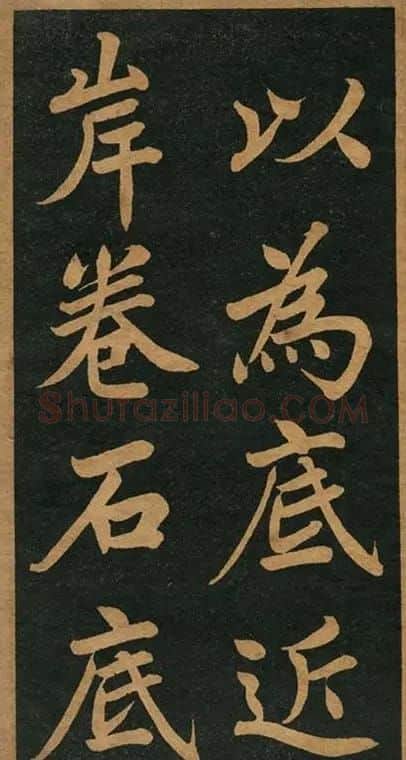 以為底近
岸卷石底
Shufaziliao.COM